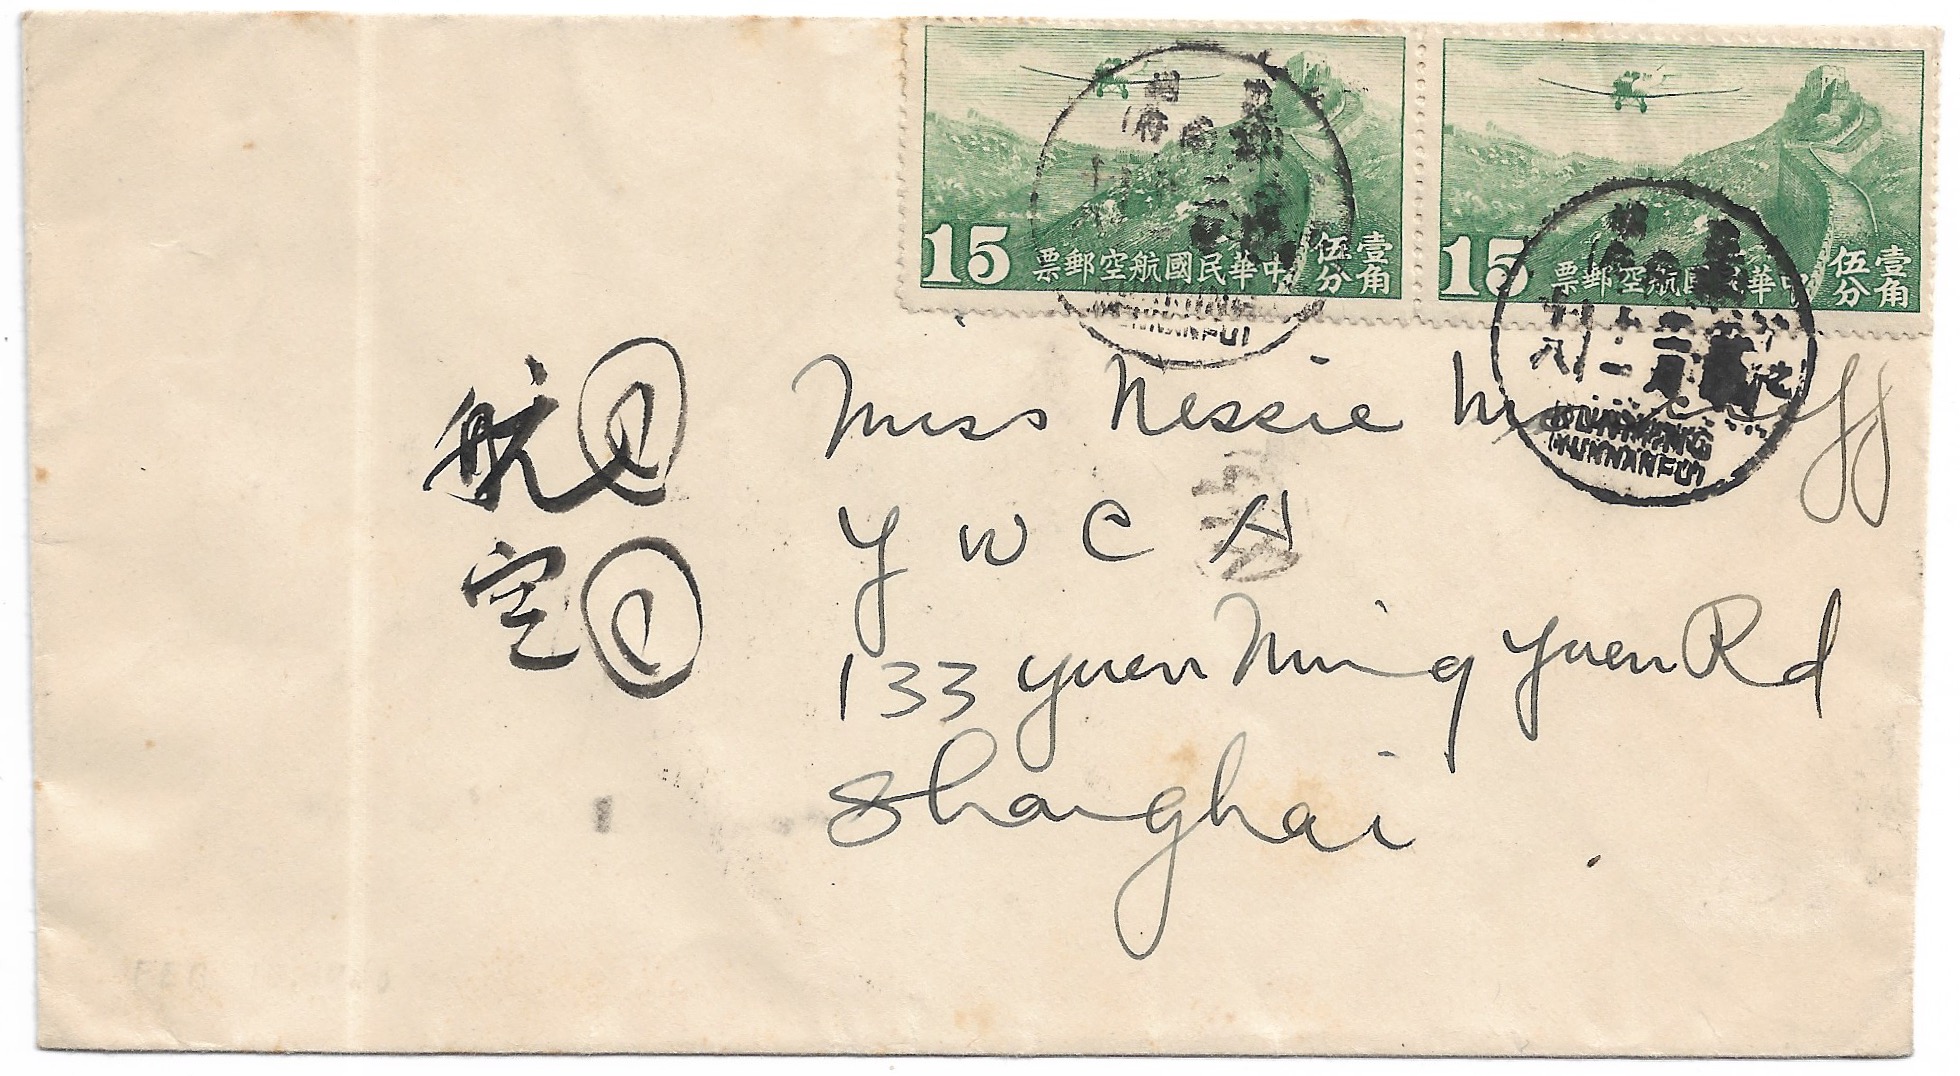 15
中華民國航空郵票
壹角
伍分
15
中華民國航空郵票
壹角
伍分
KUNMING
(YUNNANFU)
KUNMING
(YUNNANFU)
航
空
Miss Nessie
Y W C A
133 Yuen Ming Yuen Rd
Shanghai